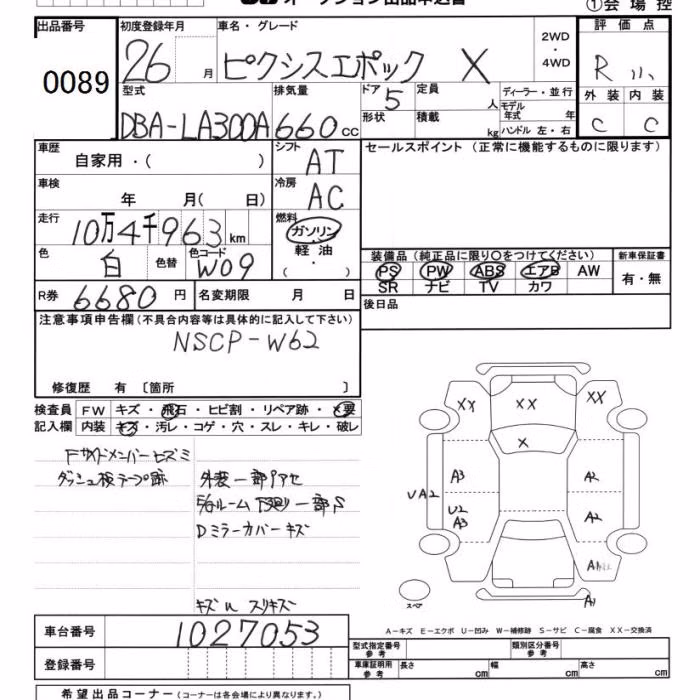 オークション出品申込書
①会場控
出品番号 0089
初度登録年月 26 月
車名・グレード ピクシスエポック X
2WD・4WD
評価点 R
外装 C 内装 C
型式 DBA-LA300A
排気量 660 cc
ドア 5 形状
定員 人 積載 kg
ディーラー・並行
モデル年式 年
ハンドル 左・右
車歴 自家用・( )
シフト AT
セールスポイント(正常に機能するものに限ります)
車検 年 月( 日)
冷房 AC
走行 10万4千963 km
燃料 ガソリン・軽油・( ・ )
色 白 色替 色コード W09
装備品(純正品に限り○をつけてください)
新車保証書
PS PW ABS エアB AW
有・無
SR ナビ TV カワ
R券 6680 円
名変期限 月 日
後日品
注意事項申告欄(不具合内容等は具体的に記入して下さい)
NSCP-W62
修復歴 有 〔箇所 〕
検査員記入欄
FW キズ・飛石・ヒビ割・リペア跡・×要
内装 キズ・汚レ・コゲ・穴・スレ・キレ・破レ
Fサイドメンバーヒズミ
ダッシュ板テープ跡
外装一部アセ
下廻り一部S
Dミラーカバーキズ
キズ U スリキズ
XX
XX
XX
X
A3
A2
UA2
U2
A3
A2
A1
スペア
A1
A−キズ E−エクボ U−凹み W−補修跡 S−サビ C−腐食 XX−交換済
車台番号 1027053
登録番号
型式指定番号 参考
類別区分番号 参考
車庫証明用 参考 長さ cm 幅 cm 高さ cm
希望出品コーナー(コーナーは各会場により異なります。)